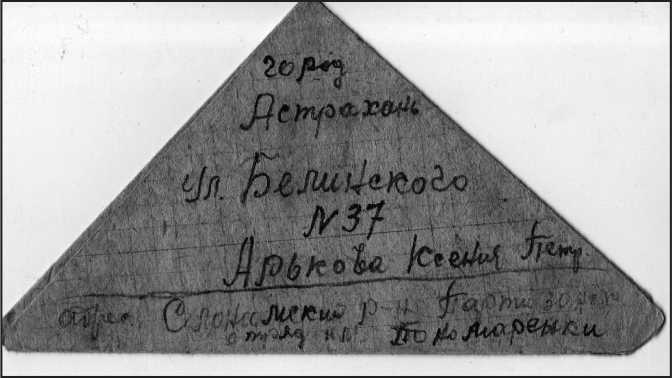 город
Астрахань
ул. Белинского
N 37
Арькова Ксения Петр.
адрес Слонимский р-н Партизанск
отряд им Пономаренки